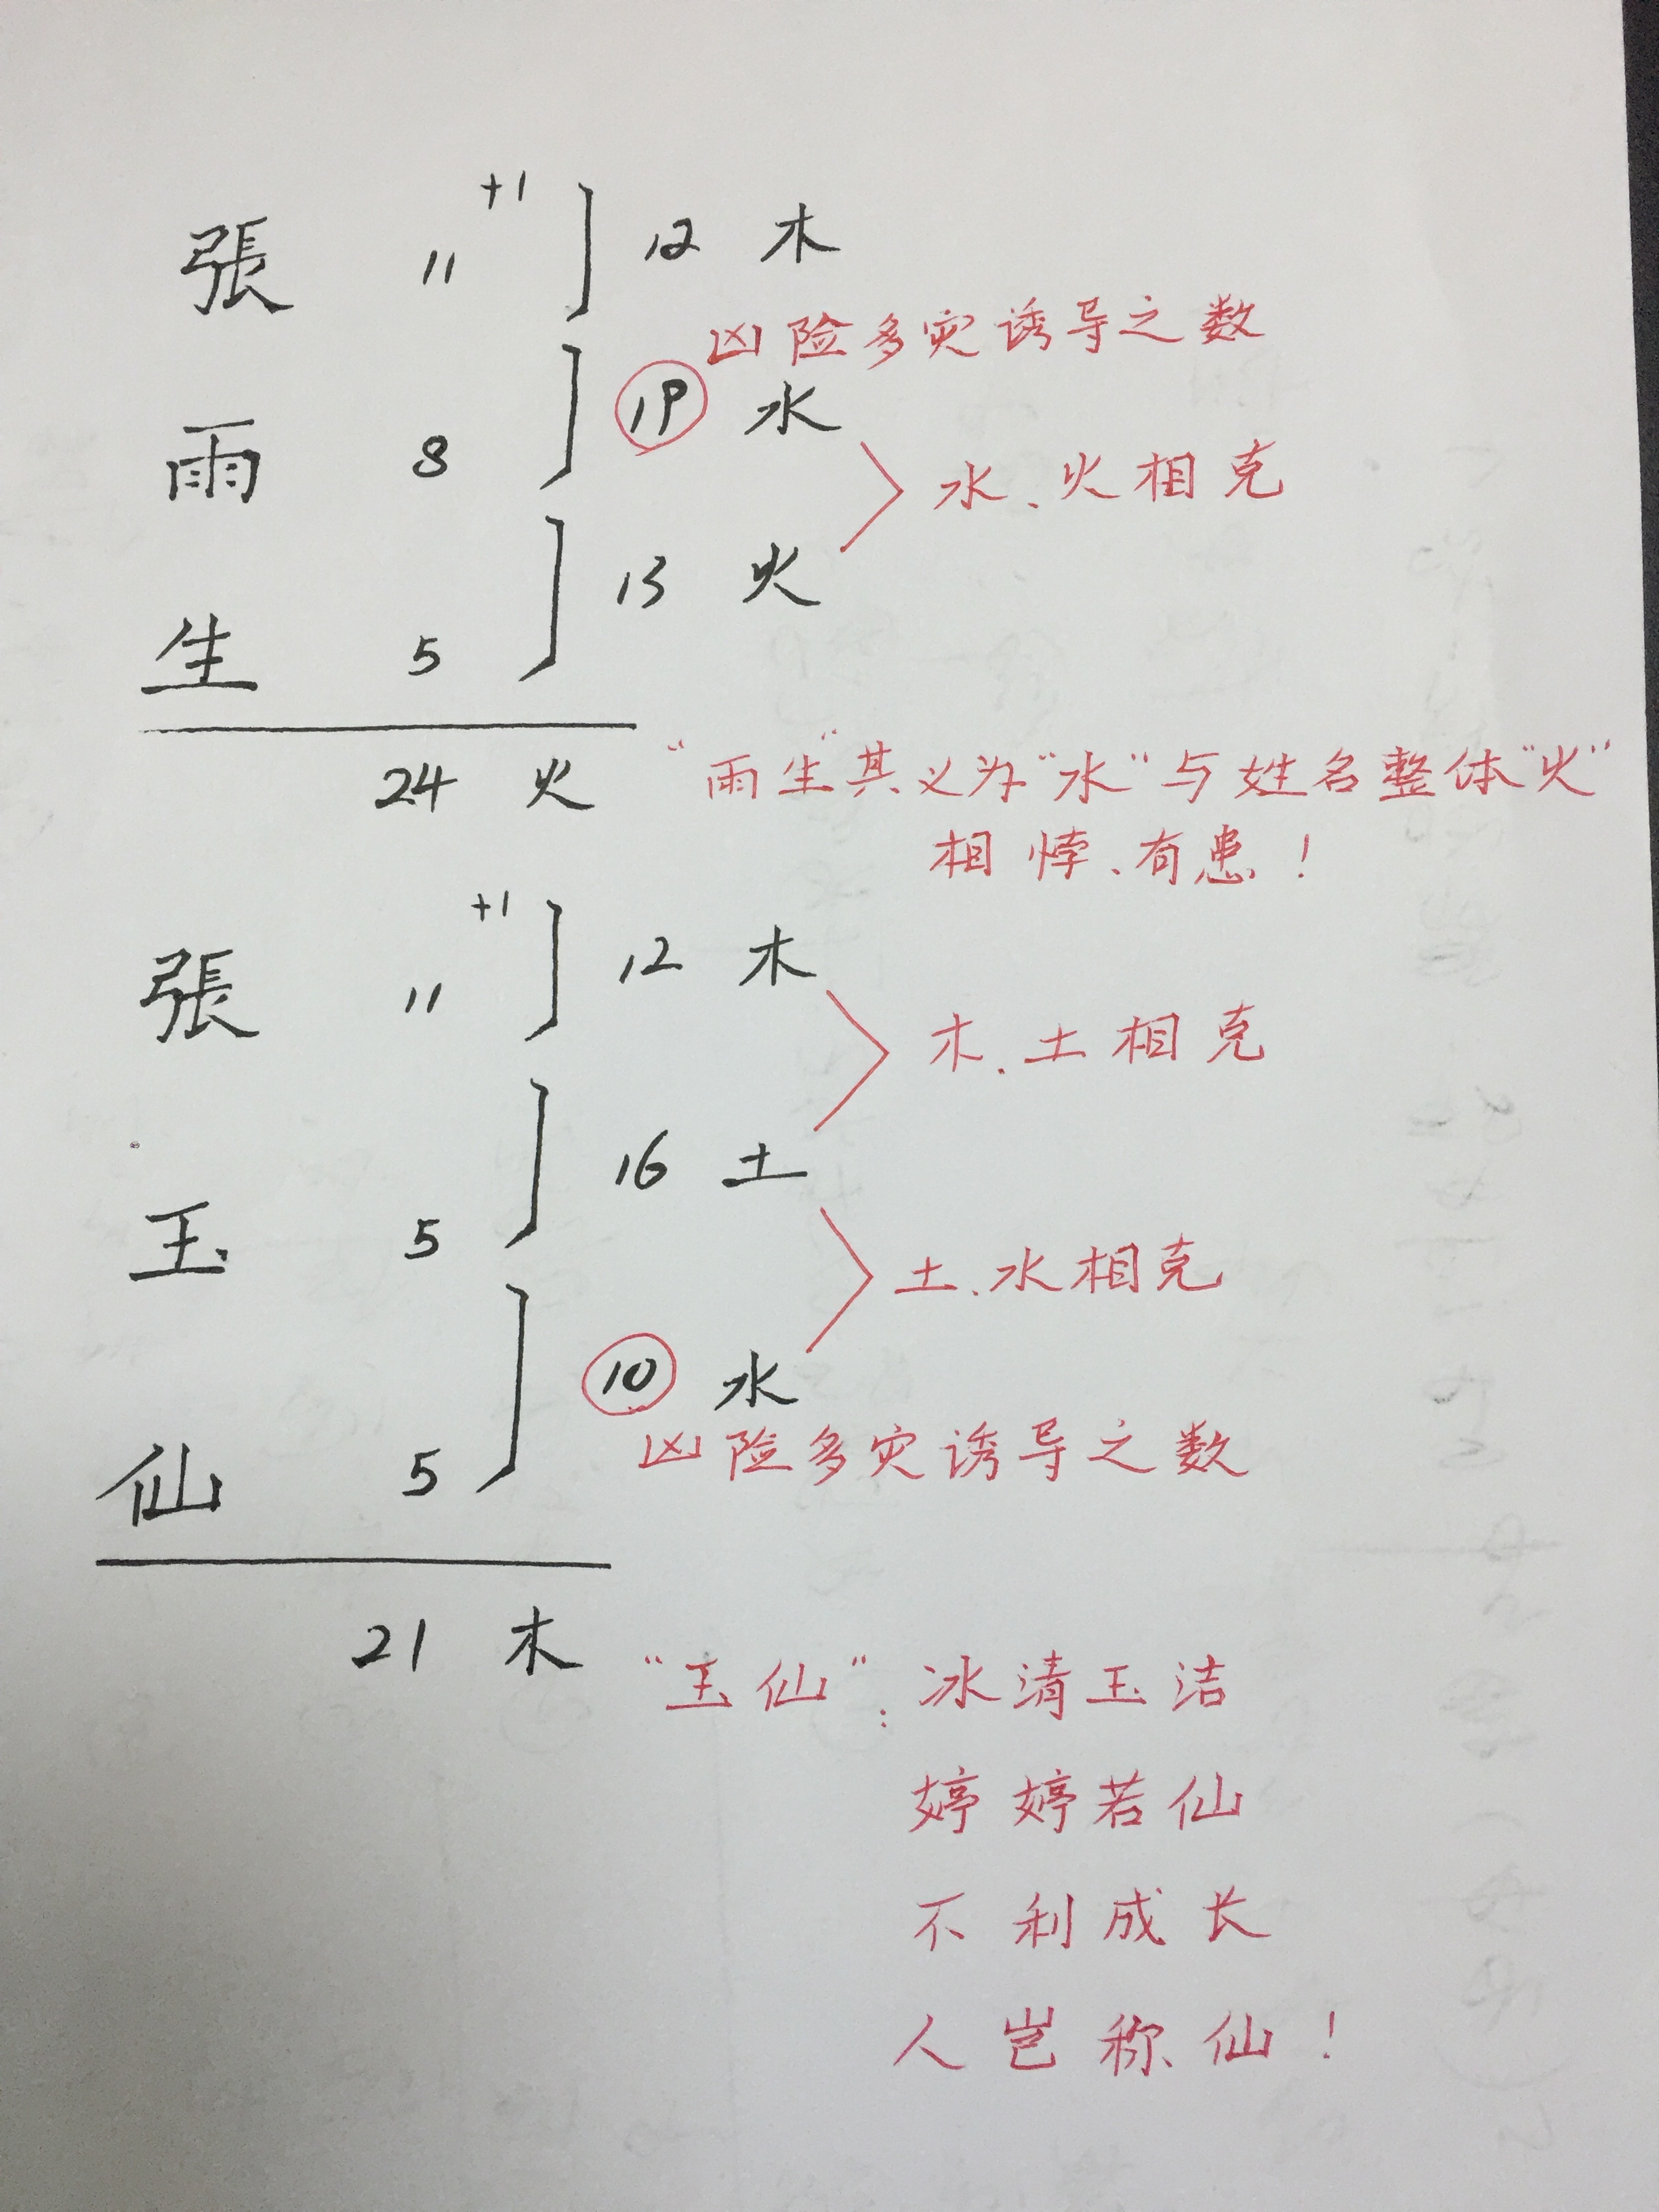 +1
張 11 12 木
凶险多灾诱导之数
19 水
雨 8 水、火相克
13 火
生 5
24 火 “雨生”其义为“水”与姓名整体“火”
相悖、有患！
+1
張 11 12 木
木、土相克
16 土
玉 5
土、水相克
10 水
凶险多灾诱导之数
仙 5
21 木 “玉仙”：冰清玉洁
婷婷若仙
不利成长
人岂称仙！